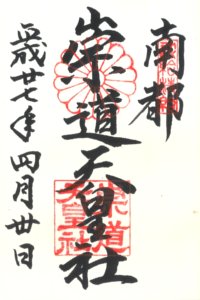 南都
崇道天皇社
平成廿七年四月廿日
崇道
天皇社